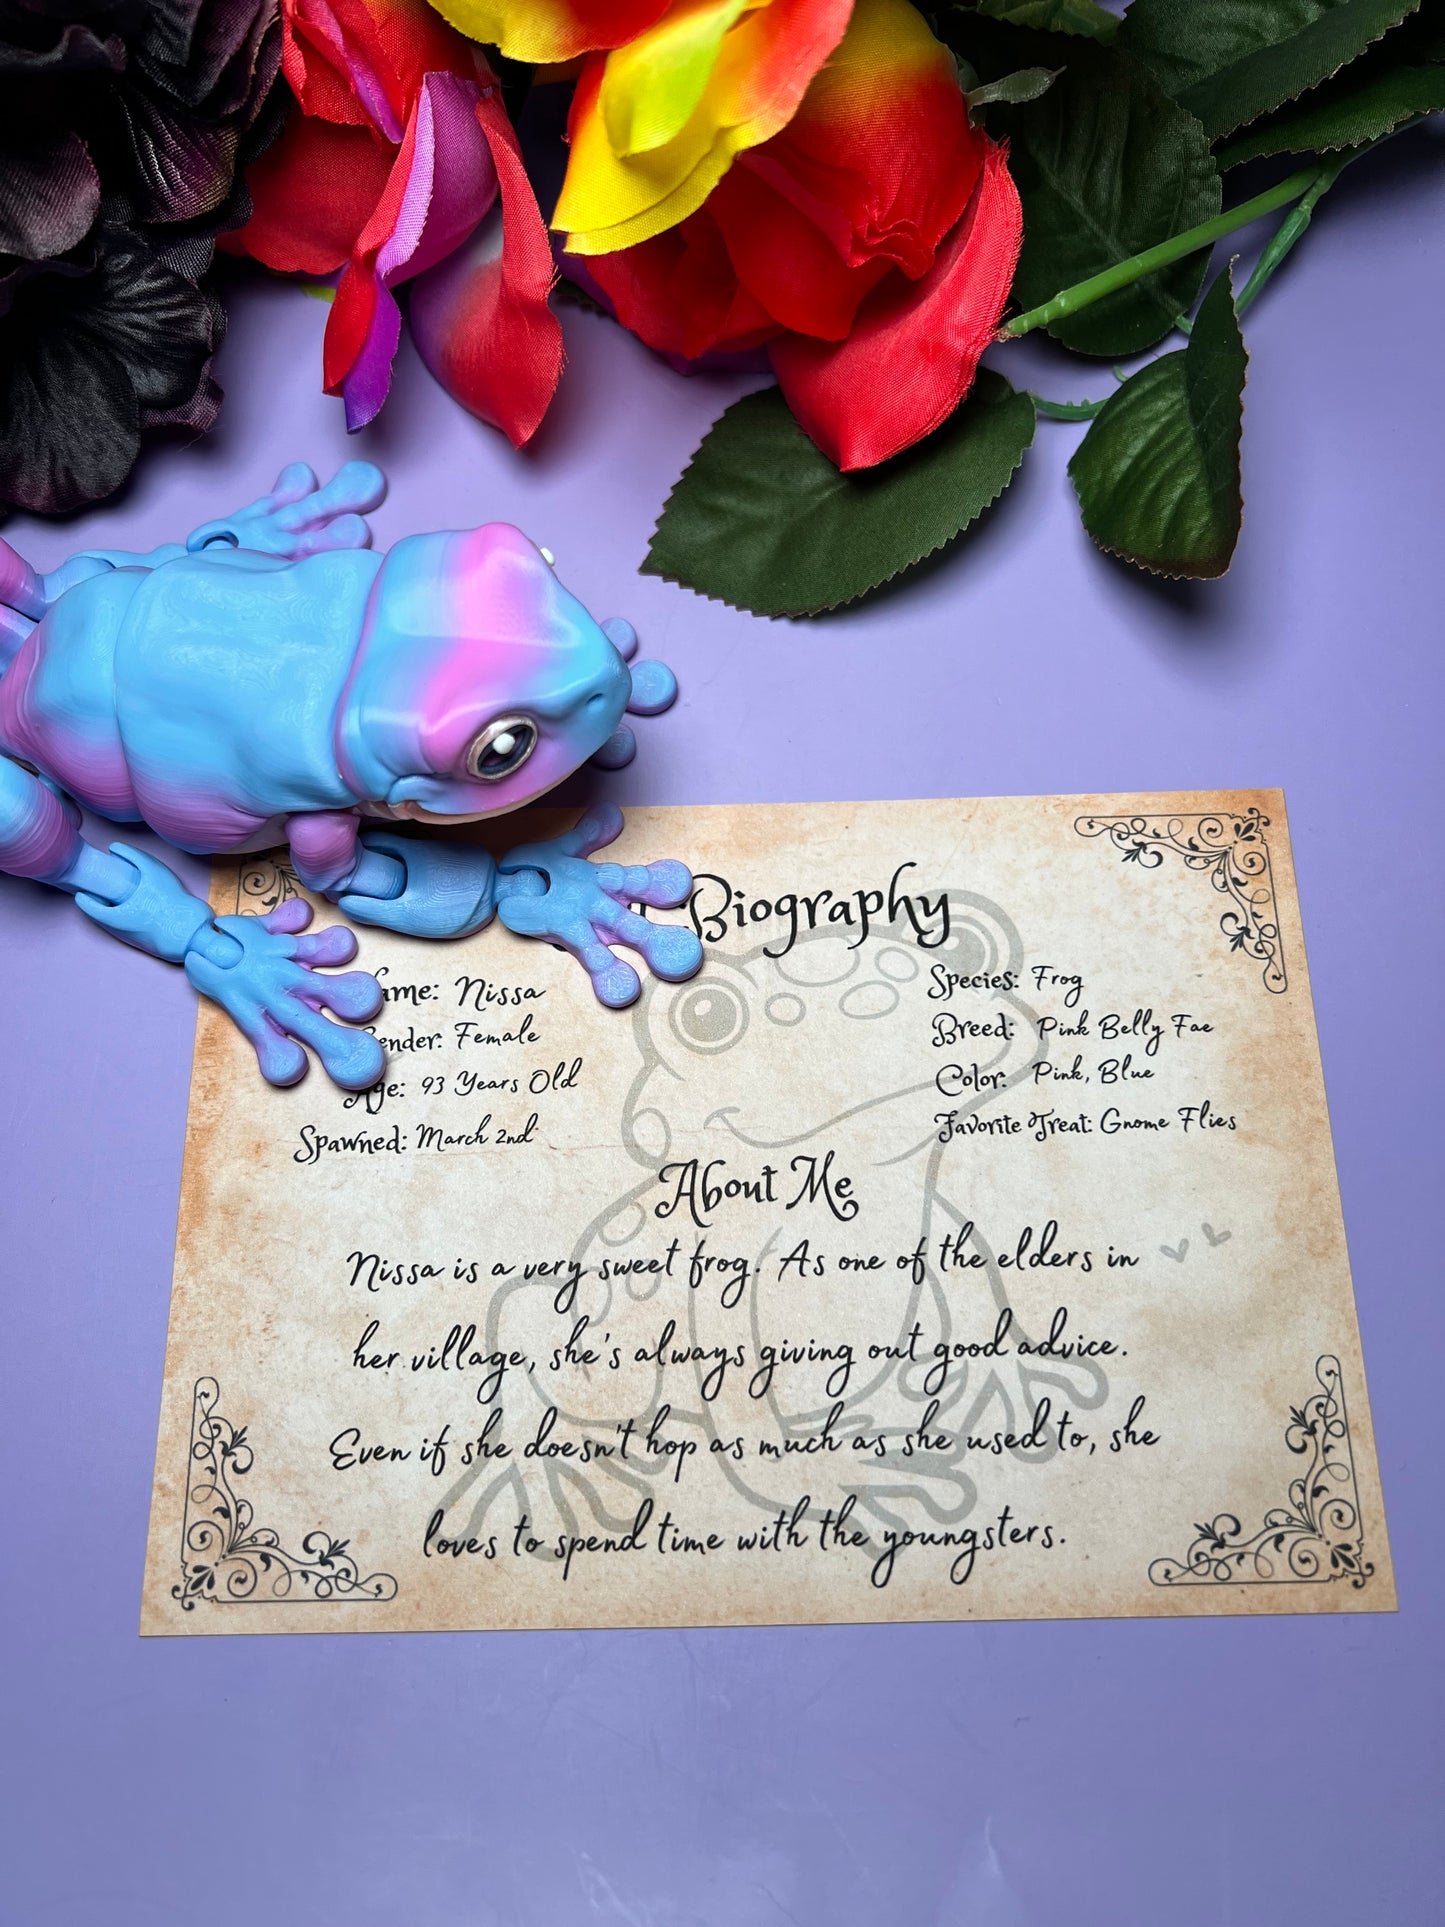 Biography
ame: Nissa
ender: Female
Age: 93 Years Old
Spawned: March 2nd
Species: Frog
Breed: Pink Belly Fae
Color: Pink, Blue
Favorite Treat: Gnome Flies
About Me
Nissa is a very sweet frog. As one of the elders in
her village, she's always giving out good advice.
Even if she doesn't hop as much as she used to, she
loves to spend time with the youngsters.